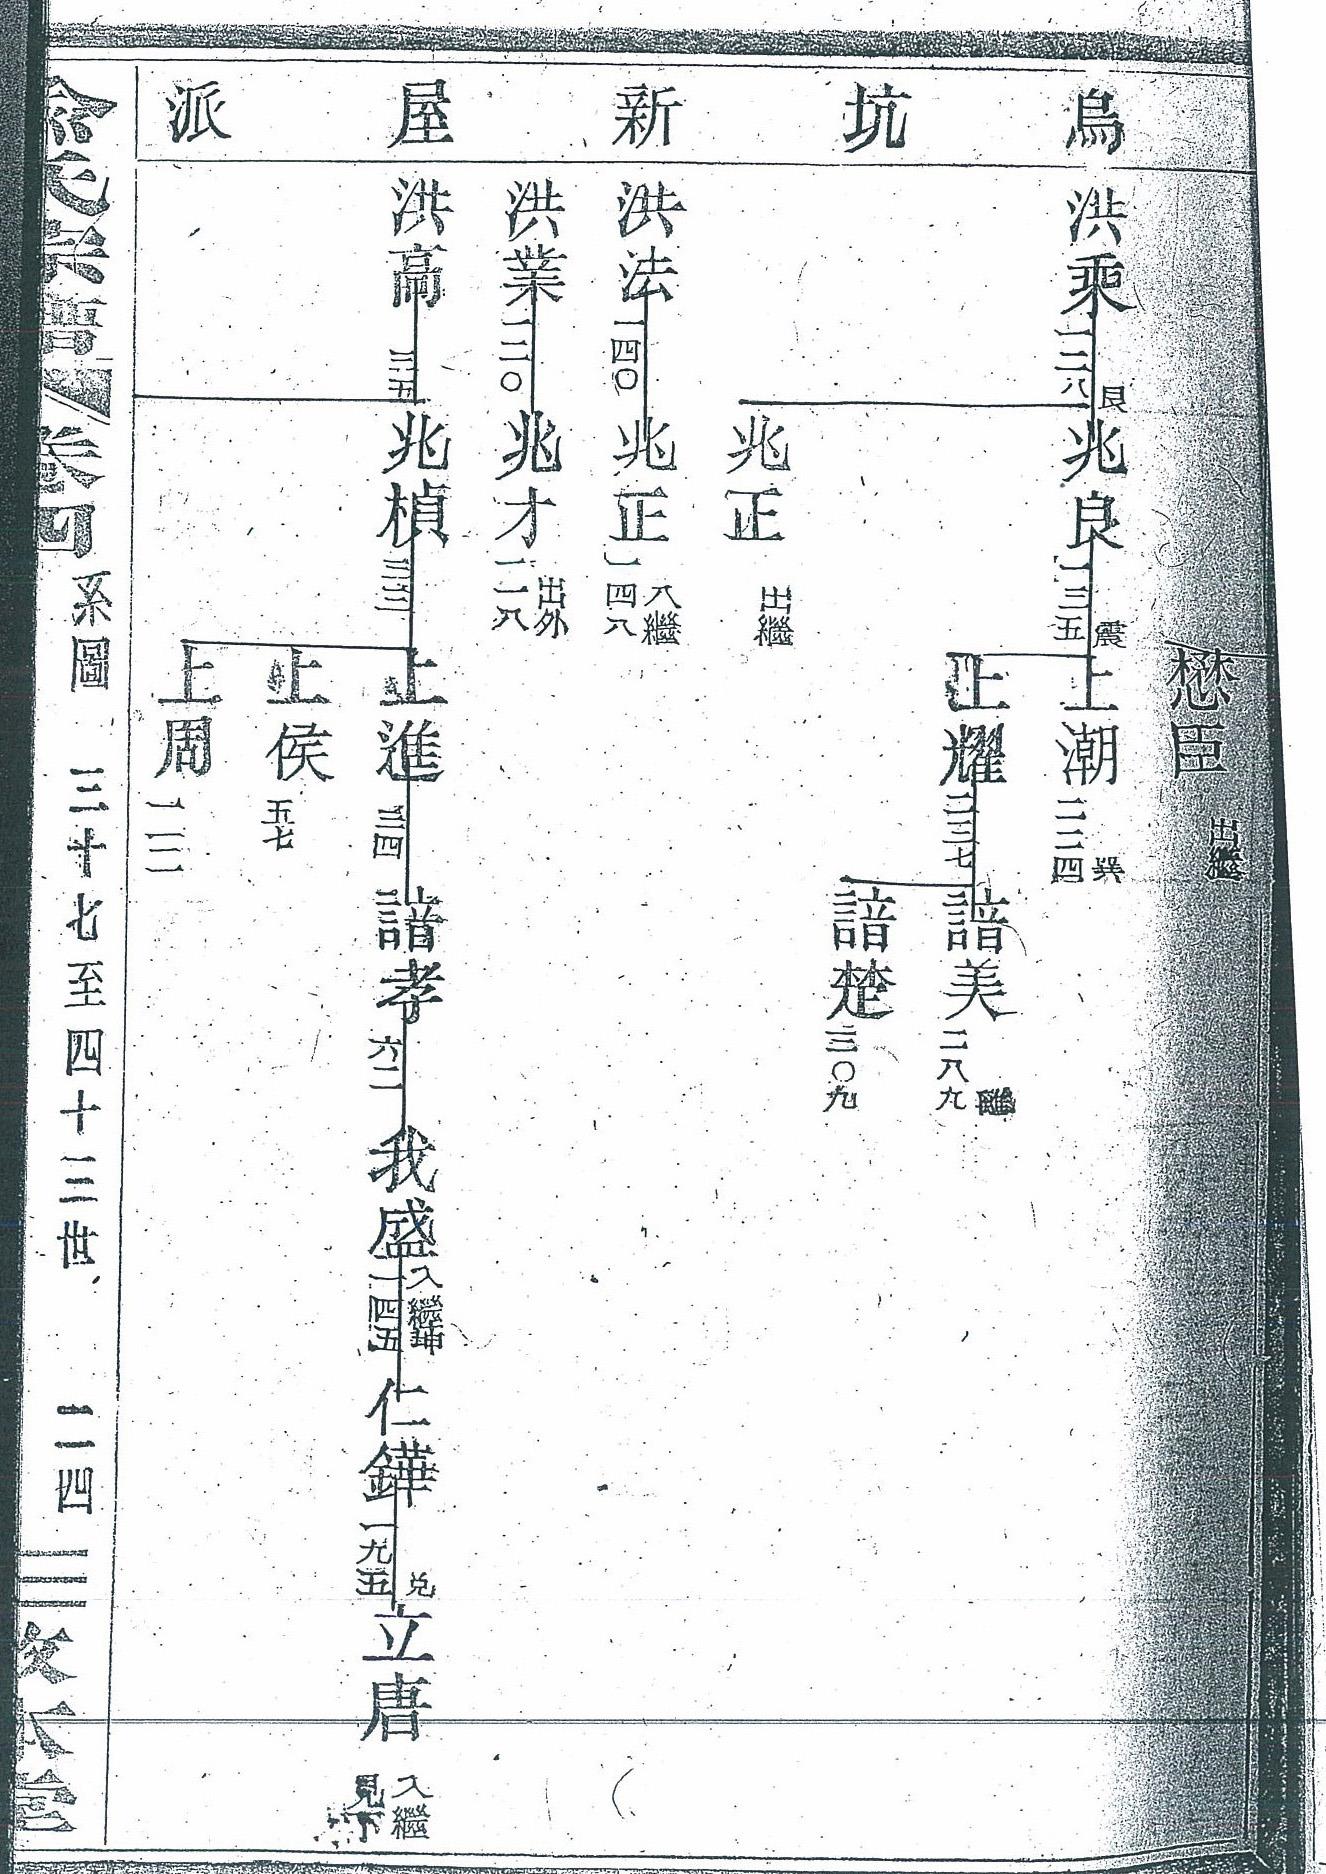 烏坑新屋派
懋臣
出繼
洪乘
一二八
艮
兆良
一三五
震
上潮
二二四
巽
上耀
二三七
諳美
二八九
諳楚
三〇九
兆正
出繼
洪法
一四〇
兆正
一四八
入繼
洪業
一二〇
兆才
一一八
出外
洪高
三五
兆楨
三三
上進
三四
諳孝
六二
我盛
一四五
入繼坤
仁鏵
一九五
兌
立唐
入繼
見下
上侯
五七
上周
一一一
俞氏宗譜
卷四
系圖
三十七至四十三世
二一四
敦本堂